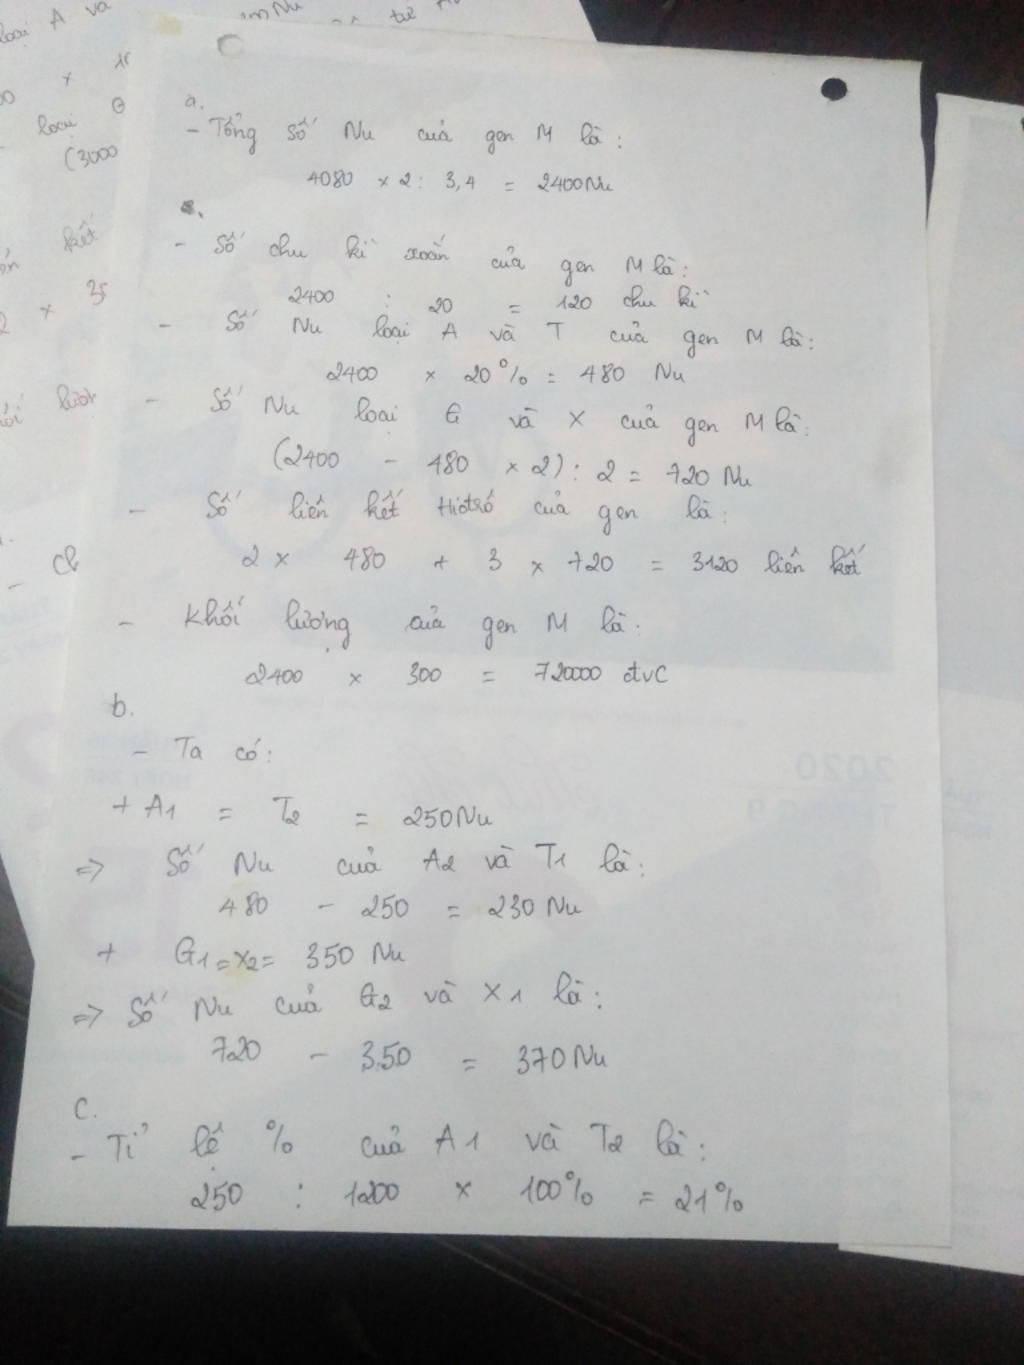 loại A và
Nu
tử
loại G
(3000
kết
x 35
lượn
a.
- Tổng số Nu của gen M là:
4080 x 2 : 3,4 = 2400 Nu
- Số chu kì xoắn của gen M là:
2400 : 20 = 120 chu kì
- Số Nu loại A và T của gen M là:
2400 x 20% = 480 Nu
- Số Nu loại G và X của gen M là:
(2400 - 480 x 2) : 2 = 720 Nu
- Số liên kết Hiđrô của gen là:
2 x 480 + 3 x 720 = 3120 liên kết
- Khối lượng của gen M là:
2400 x 300 = 720000 đvC
b.
- Ta có:
+ A1 = T2 = 250 Nu
=> Số Nu cuả A2 và T1 là:
480 - 250 = 230 Nu
+ G1 = X2 = 350 Nu
=> Số Nu cuả G2 và X1 là:
720 - 350 = 370 Nu
c.
- Tỉ lệ % cuả A1 và T2 là:
250 : 1200 x 100% = 21%
2020